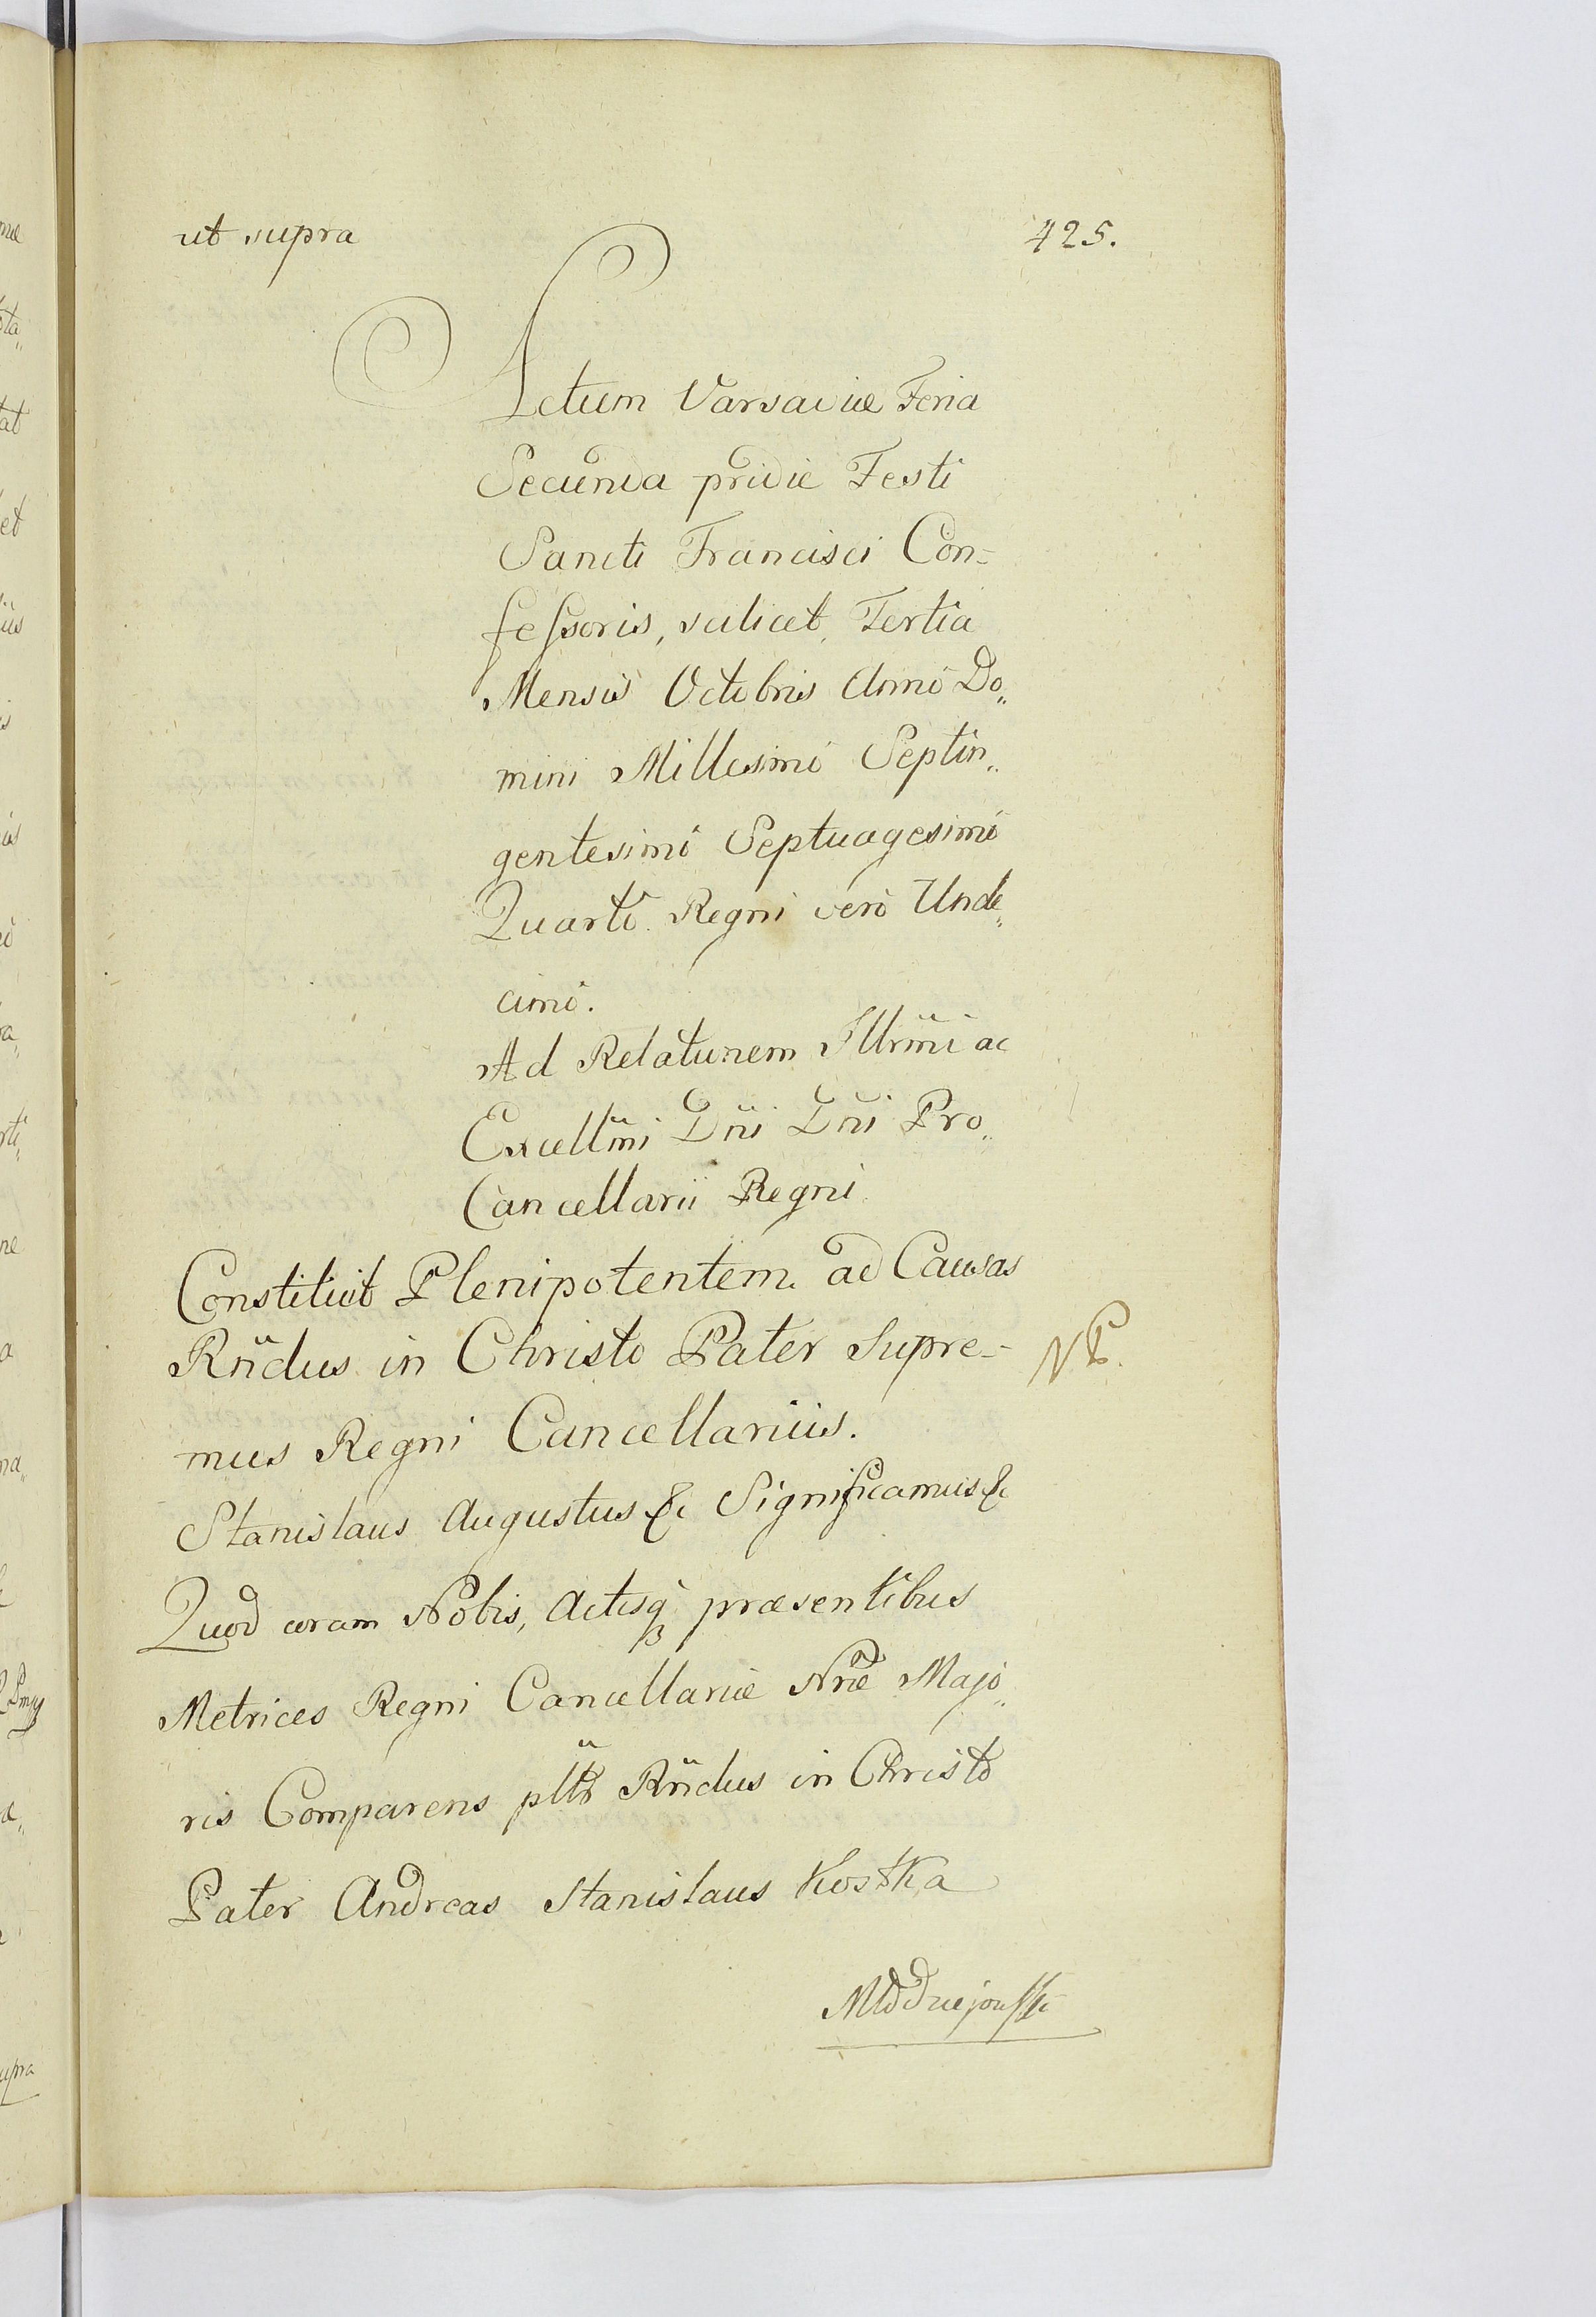 ut supra
425.
Actum Varsaviæ Feria
Secunda pridie Festi
Sancti Francisci Con=
feſsoris, scilicet, Tertia
Mensis Octobris Anno Do„
mini Millesimo Septin„
gentesimo Septuagesimo
Quarto. Regni vero Unde„
cimo.
Ad Relationem Illrm̃i ac
Excellm̃i Dñi Dñi Pro„
Cancellarii Regni
Constituit Plenipotentem ad Causas
Rñdus in Christo Pater Supre=
NP.
mus Regni Cancellarius.
Stanislaus Augustus &c Significamus &c
Quod coram Nobis, Actisq3 præsentibus
Metrices Regni Cancellariæ Nræ Majo„
ris Comparens pltr̃ Rñdus in Christo
Pater Andreas Stanislaus Kostka